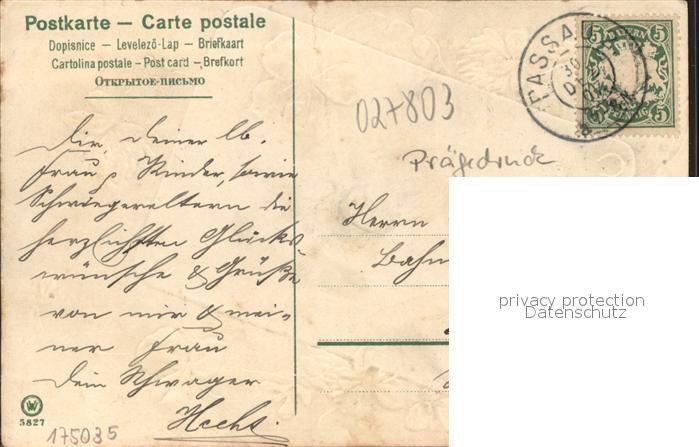 Postkarte — Carte postale
Dopisnice — Levelező-Lap — Briefkaart
Cartolina postale - Post card — Brefkort
Открытое-письмо
PASSAU
30
DEZ
5 BAYERN 5
5 5
027803
Prägedruck
Dir, deiner lb.
Frau & Kinder, sowie
Schwiegereltern die
herzlichsten Glücks-
wünsche & Grüße
von mir & mei-
ner Frau
Dein Schwager
Hecht.
Herrn
Bahn
privacy protection
Datenschutz
5827
175035